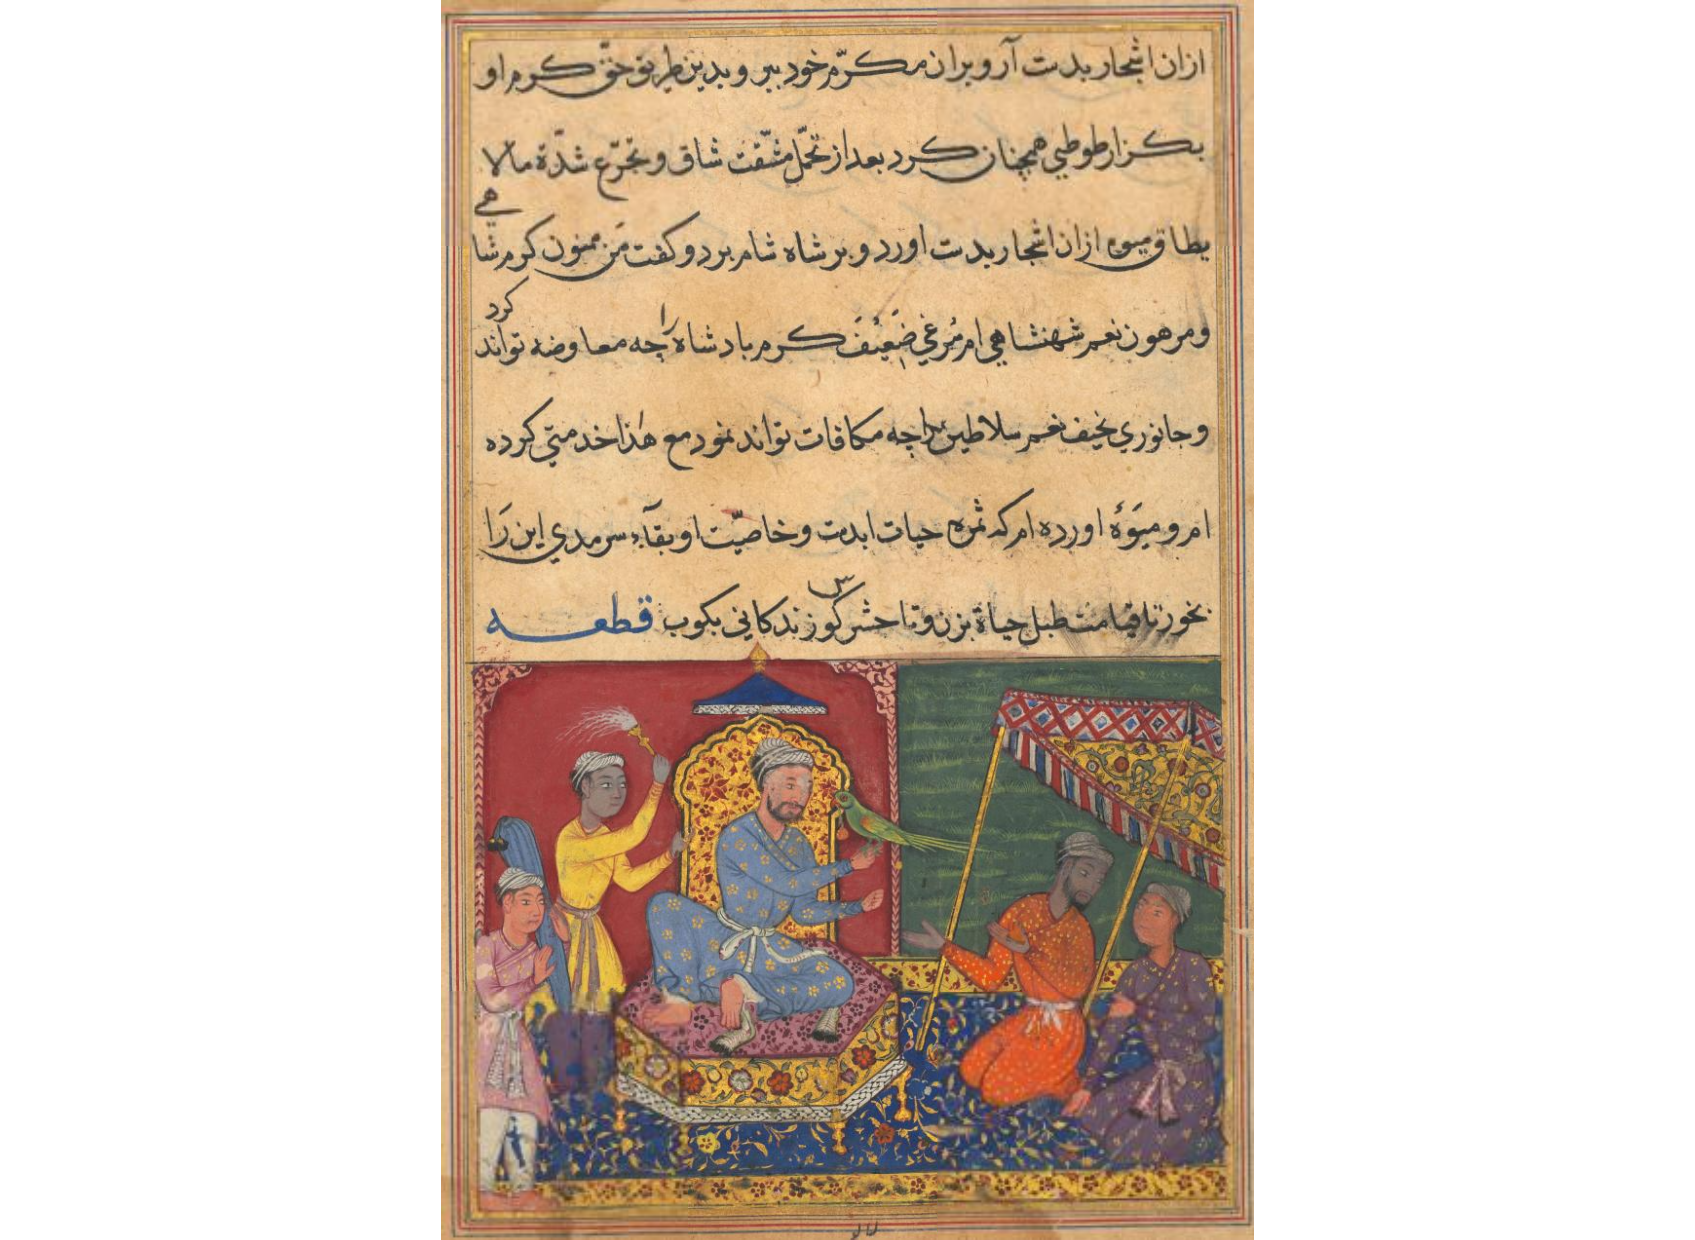 ازان اشجار بدست آر و بران مکرّم خود ببر و بدین طریق حقّ کرم او
بکزار طوطي همچنان کرد بعد از تحمّل مشقّت شاق و تجرّع شدّة مالا
یطاق میوه ازان اشجار بدست اورد و بر شاه شام برد و کفت من ممنون کرم شاهي
و مرهون نعم شهنشاهي ام مُرغي ضَعیْفَ کرم بادشاه را چه معاوضه تواند کرد
و جانوري نحیف نعم سلاطین را چه مکافات تواند نمود مع هٰذا خدمتي کرده
ام و میَوهٔ اورده ام که ثمره حیات ابدست و خاصیّت او بقآء سرمدي این رَا
بخور تا قیامت طبل حیاة بزن و تا حشر کوس زندکاني بکوب قطعه